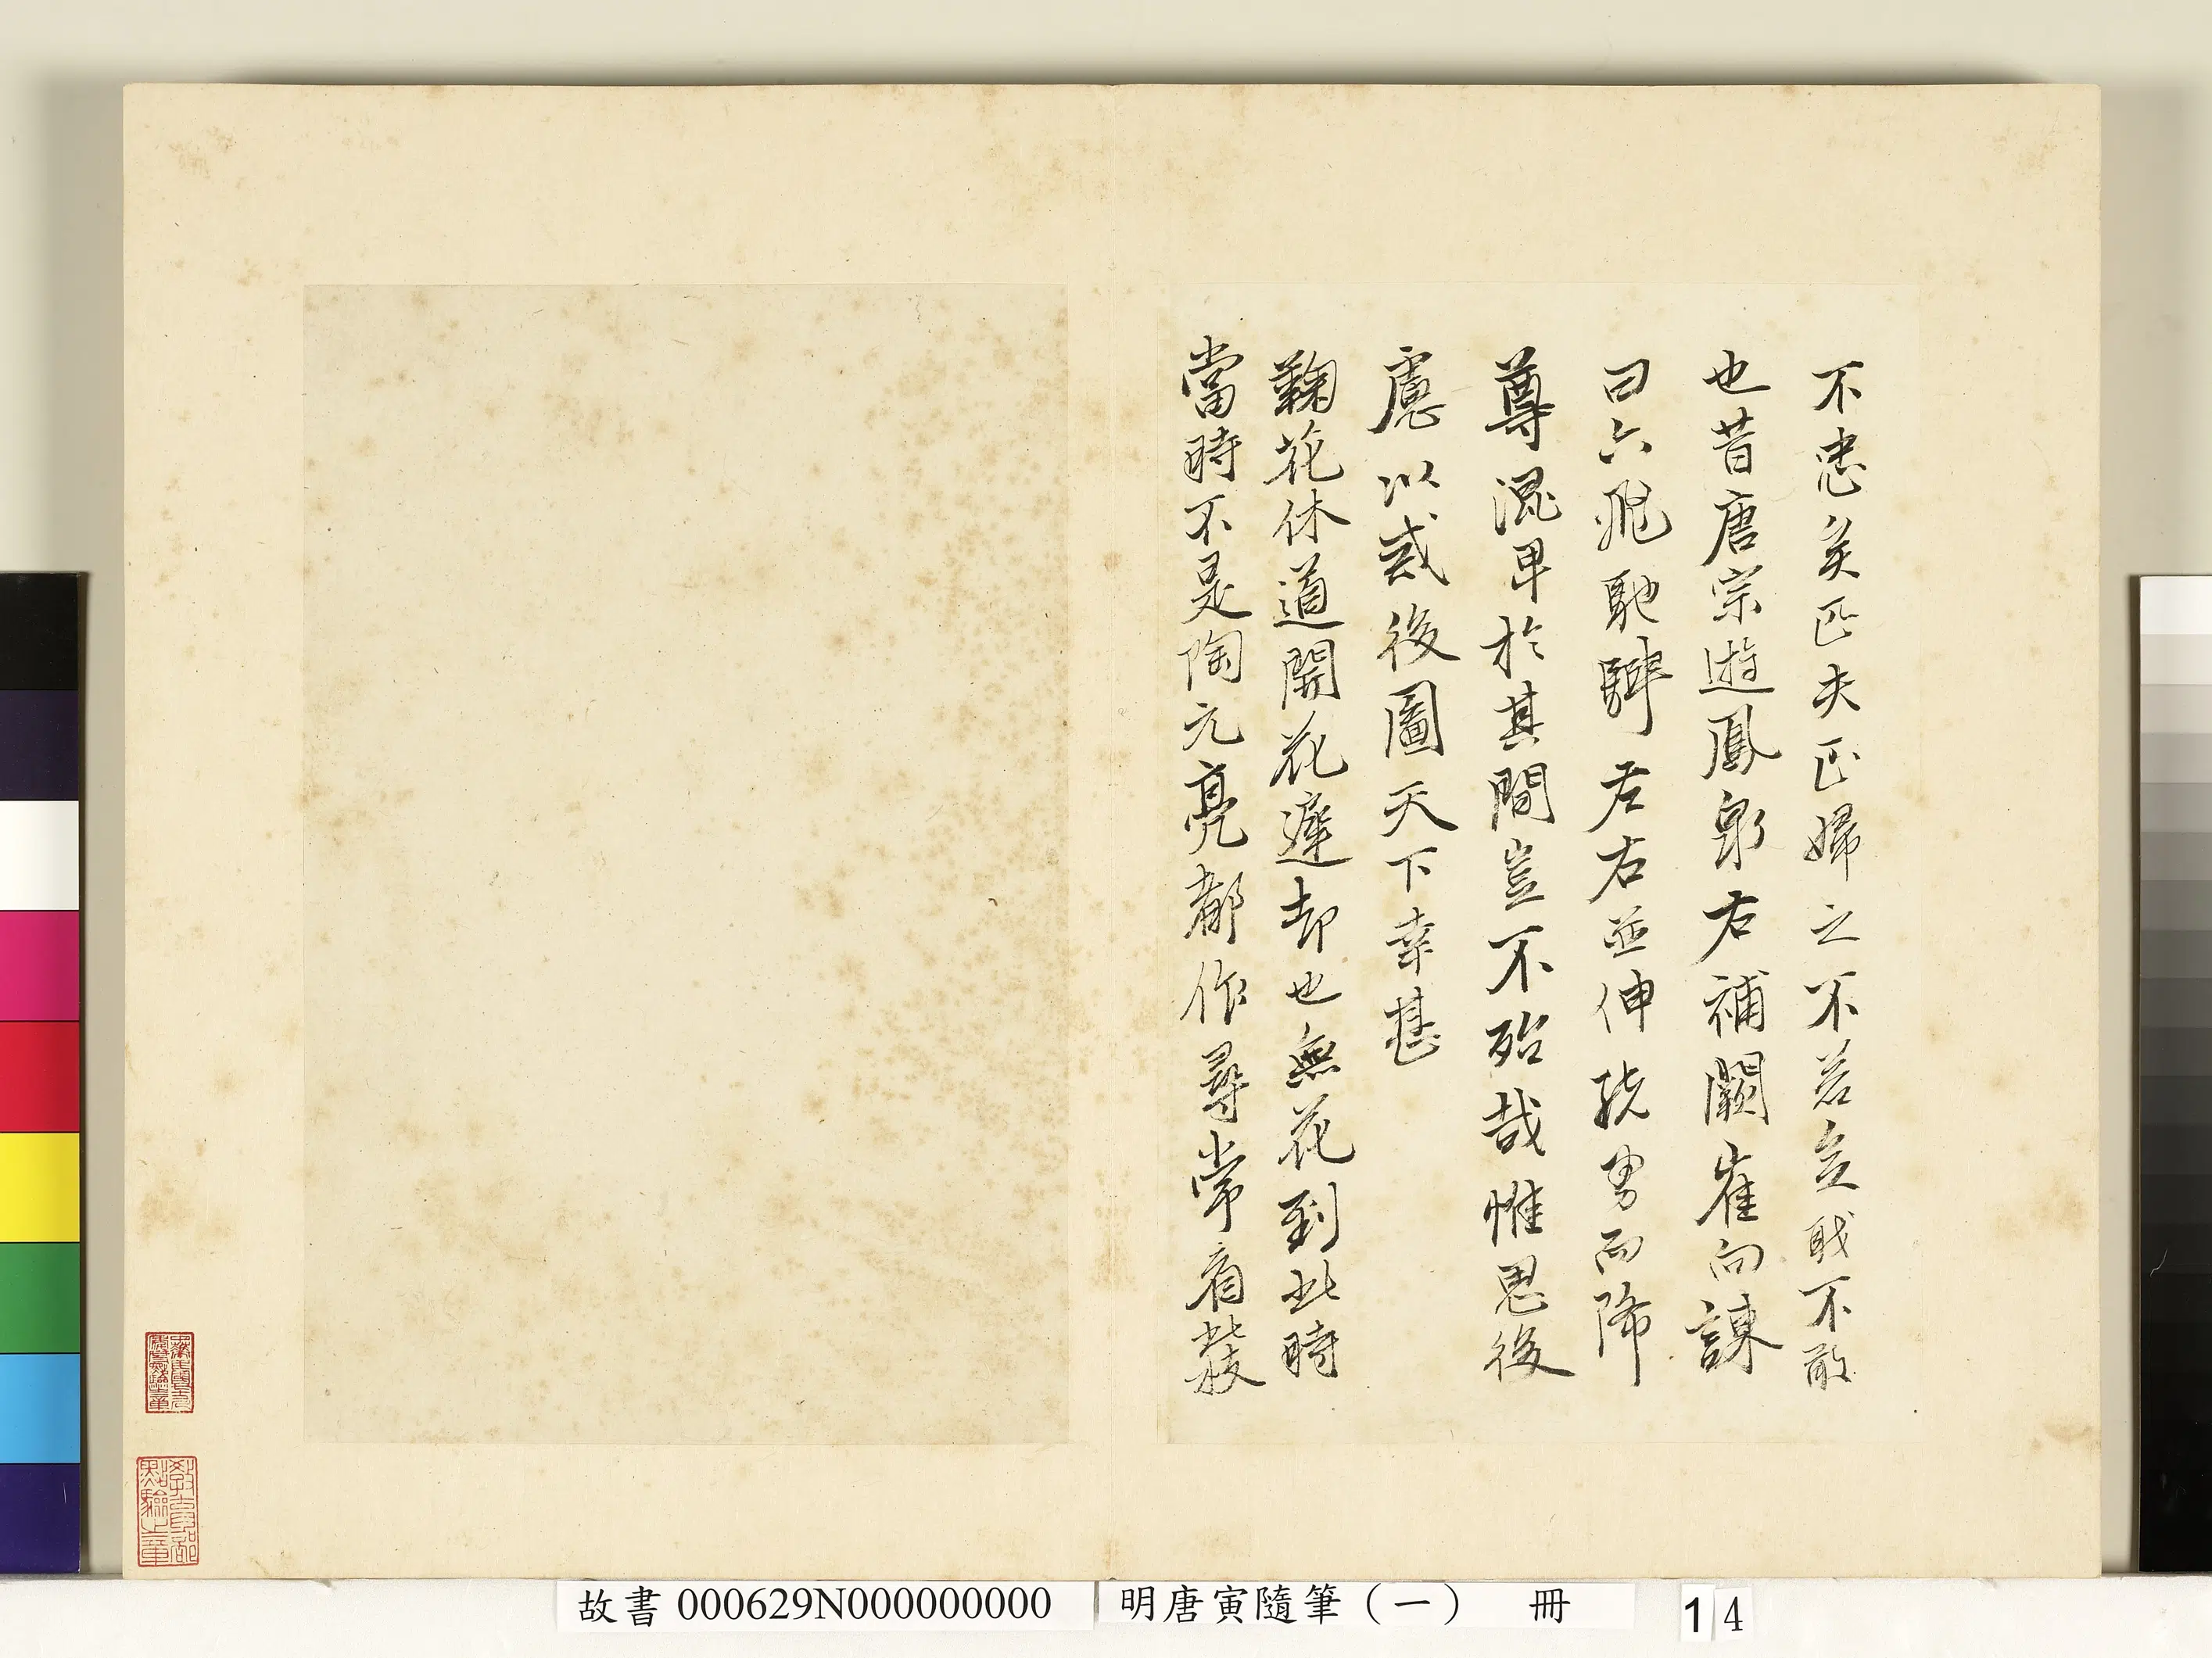 不忠矣匹夫匹婦之不若不敢
也昔唐宗遊鳳泉右補闕崔向諫
曰六飛馳騁右並伸勇而降
尊混卑於其間豈不殆哉惟思後
慮以後圖天下幸甚
鞠花休道開花遲却也無花到此時
當時不是陶元亮都作尋常看發
教育部
點驗之章
故書 000629N000000000
明唐寅隨筆（一） 冊
14